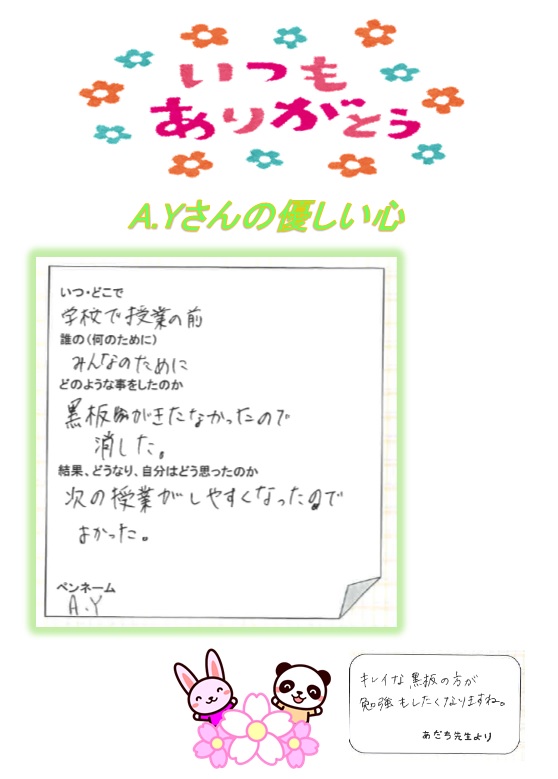 いつも
ありがとう
A.Yさんの優しい心
いつ・どこで
学校で授業の前
誰の(何のために)
みんなのために
どのような事をしたのか
黒板がきたなかったので
消した。
結果、どうなり、自分はどう思ったのか
次の授業がしやすくなったので
よかった。
ペンネーム
A.Y
キレイな黒板の方が
勉強もしたくなりますね。
あだち先生より